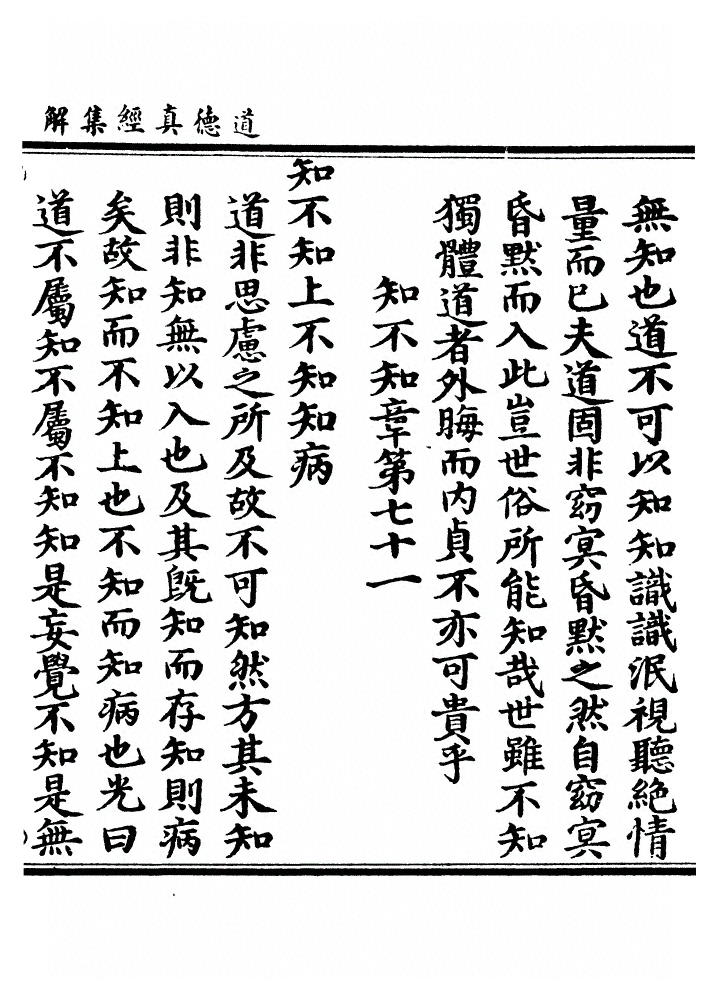 道德真經集解
無知也道不可以知知識識泯視聽絕情
量而已夫道固非窈冥昏默之然自窈冥
昏默而入此豈世俗所能知哉世雖不知
獨體道者外晦而內貞不亦可貴乎
知不知章第七十一
知不知上不知知病
道非思慮之所及故不可知然方其未知
則非知無以入也及其旣知而存知則病
矣故知而不知上也不知而知病也光曰
道不屬知不屬不知知是妄覺不知是無